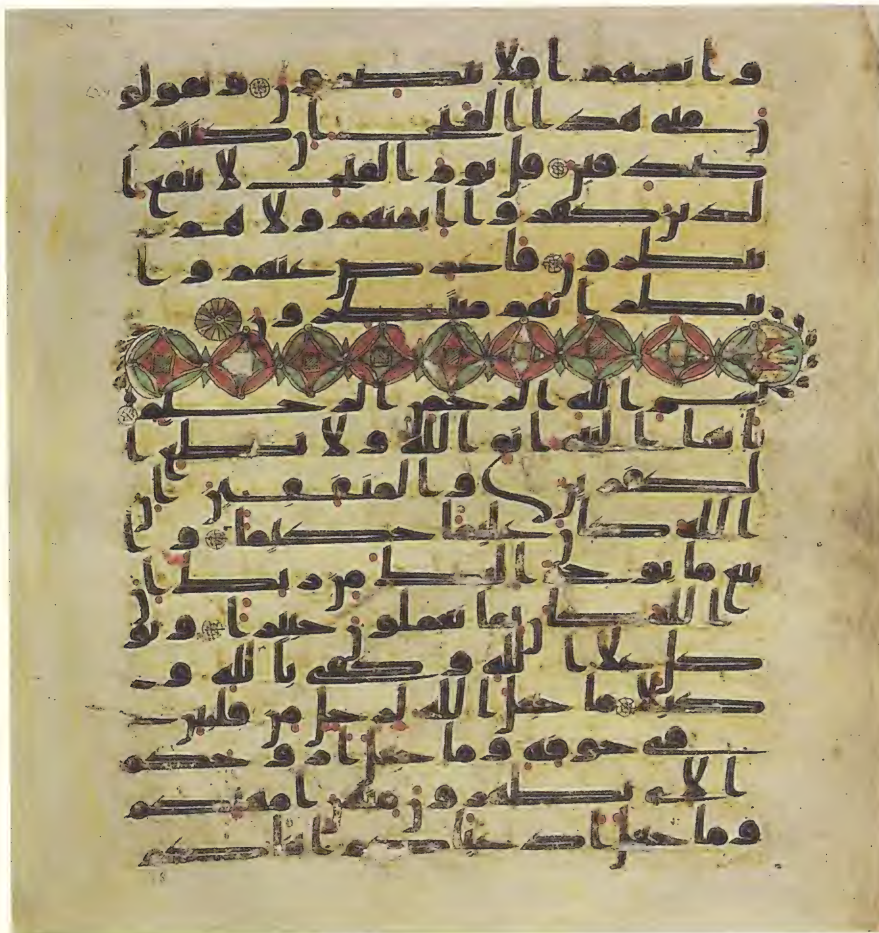 وانفسهم افلا يبصرون ويقولو
ن متى هذا الفتح ان كنتم
صدقين قل يوم الفتح لا ينفع ا
لذين كفروا ايمنهم ولا هم
ينظرون فاعرض عنهم وا
نتظر انهم منتظرون
بسم الله الرحمن الرحيم
يايها النبي اتق الله ولا تطع ا
لكفرين والمنفقين ان
الله كان عليما حكيما وا
تبع ما يوحى اليك من ربك ان
الله كان بما تعملون خبيرا وتو
كل على الله وكفى بالله و
كيلا ما جعل الله لرجل من قلبين
في جوفه وما جعل ازوجكم
الاي تظهرون منهن امهتكم
وما جعل ادعياكم ابناكم